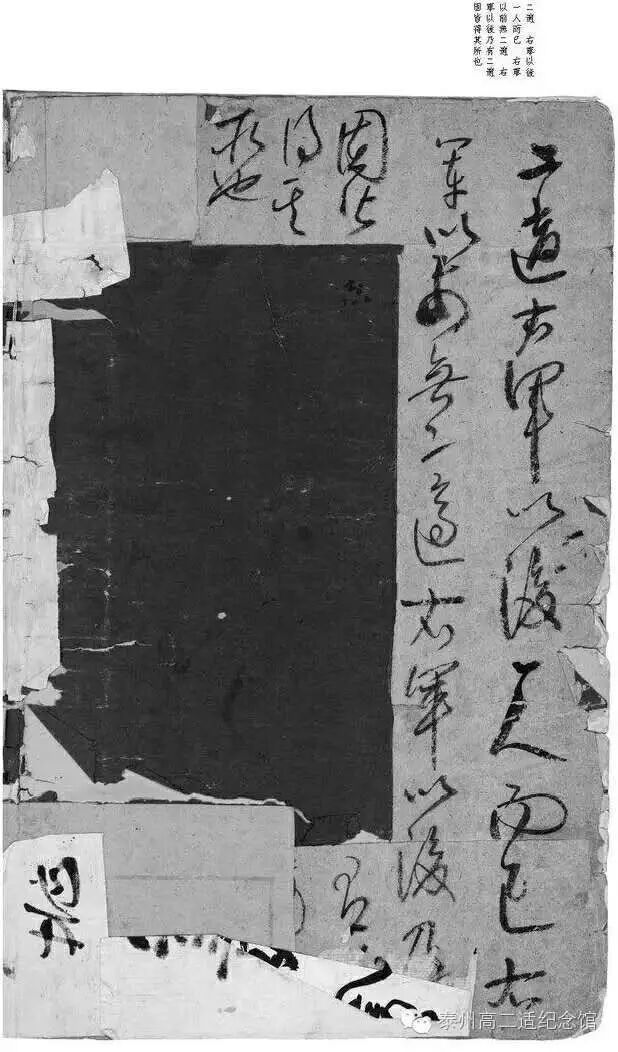 二適 右軍以後
一人而已 右軍
以前無二適 右
軍以後乃有二適
固皆得其所也
二適右軍以後一人而已右
軍以前無二適右軍以後乃
有二適
固皆
得其
所也
泰州高二适纪念馆